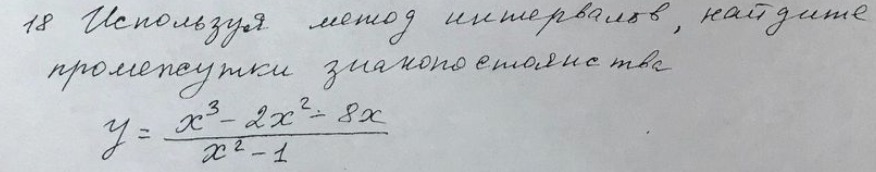 18 Используя метод интервалов, найдите
промежутки знакопостоянства
y = \frac{x^3 - 2x^2 - 8x}{x^2 - 1}